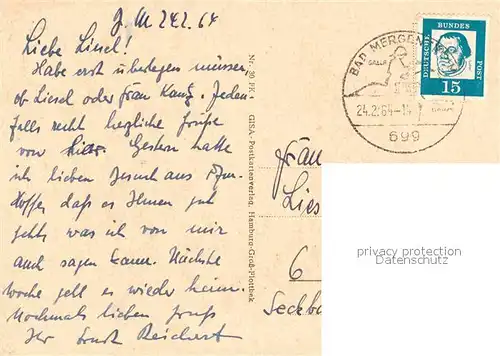 J. M 24.2.64
Liebe Liesel!
Habe erst überlegen müssen,
ob Liesel oder Frau Kanz. Jeden-
falls recht herzliche Grüße
von hier. Gestern hatte
ich lieben Besuch aus
Hoffe, daß es Ihnen gut
geht, was ich von mir
auch sagen kann. Nächste
Woche geht es wieder heim.
Nochmals lieben Gruß
Ihr Ernst Reichert
Nr. 30 PH •
GISA-Postkartenverlag, Hamburg-Groß-Flottbek
BAD MERGEN
24.2.64-14
699
DEUTSCHE BUNDES POST
15
Frau
Lies
6
Seckb
privacy protection
Datenschutz